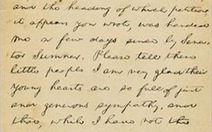 and the heading of which petition
it appears you wrote, was handed
me a few days since by Sena-
tor Sumner. Please tell these
little people I am very glad their
young hearts are so full of just
and generous sympathy, and
that, while I have not the